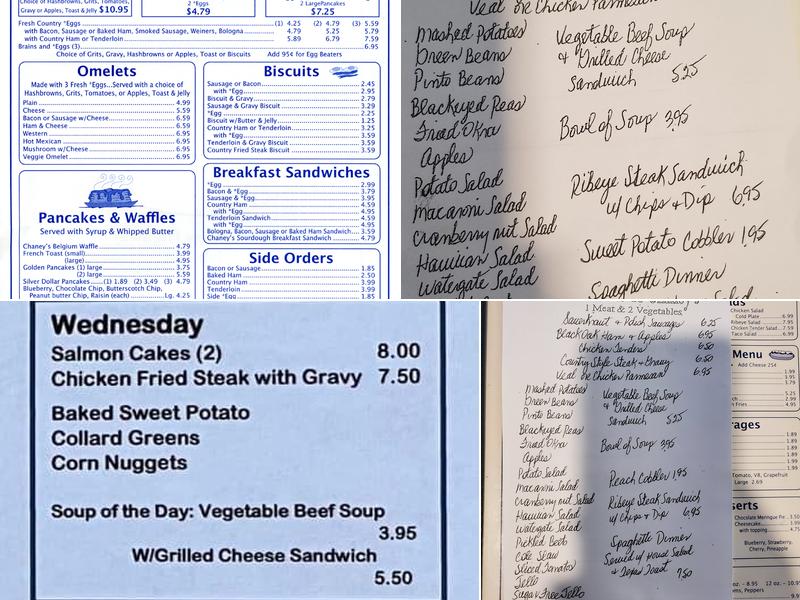 Choice of Hashbrowns, Grits, Tomatoes,
Gravy or Apples, Toast & Jelly $10.95
2 *Eggs
$4.79
2 Large Pancakes
$7.25
Fresh Country *Eggs (1) 4.25 (2) 4.79 (3) 5.59
with Bacon, Sausage or Baked Ham, Smoked Sausage, Weiners, Bologna 4.79 5.25 5.79
with Country Ham or Tenderloin 5.89 6.79 7.59
Brains and *Eggs (3) 6.95
Choice of Grits, Gravy, Hashbrowns or Apples, Toast or Biscuits Add 95¢ for Egg Beaters
Omelets
Made with 3 Fresh *Eggs...Served with a choice of
Hashbrowns, Grits, Tomatoes, or Apples, Toast & Jelly
Plain 4.99
Cheese 5.59
Bacon or Sausage w/Cheese 6.59
Ham & Cheese 6.59
Western 6.95
Hot Mexican 6.95
Mushroom w/Cheese 6.95
Veggie Omelet 6.95
Pancakes & Waffles
Served with Syrup & Whipped Butter
Chaney's Belgium Waffle 4.79
French Toast (small) 3.99
(large) 4.95
Golden Pancakes (1) large 3.75
(2) large 5.59
Silver Dollar Pancakes (1) 1.89 (2) 3.49 (3) 4.79
Blueberry, Chocolate Chip, Butterscotch Chip,
Peanut butter Chip, Raisin (each) Lg. 4.25
Biscuits
Sausage or Bacon 2.45
with *Egg 2.95
Biscuit & Gravy 2.79
Sausage & Gravy Biscuit 3.29
*Egg 2.25
Biscuit w/Butter & Jelly 1.25
Country Ham or Tenderloin 3.25
with *Egg 3.59
Tenderloin & Gravy Biscuit 3.59
Country Fried Steak Biscuit 3.59
Breakfast Sandwiches
*Egg 2.99
Bacon & *Egg 3.79
Sausage & *Egg 3.95
Country Ham 4.59
with *Egg 4.95
Tenderloin Sandwich 4.59
with *Egg 4.95
Bologna, Bacon, Sausage or Baked Ham Sandwich 3.59
Chaney's Sourdough Breakfast Sandwich 4.79
Side Orders
Bacon or Sausage 1.85
Baked Ham 2.50
Country Ham 3.99
Tenderloin 3.99
Side *Egg 1.85
Veal or Chicken Parmesan
Mashed Potatoes
Green Beans
Pinto Beans
Blackeyed Peas
Fried Okra
Apples
Potato Salad
Macaroni Salad
Cranberry nut Salad
Hawaiian Salad
Watergate Salad
Vegetable Beef Soup
& Grilled Cheese
Sandwich 5.25
Bowl of Soup 3.95
Ribeye Steak Sandwich
w/ Chips + Dip 6.95
Sweet Potato Cobbler 1.95
Spaghetti Dinner
Wednesday
Salmon Cakes (2) 8.00
Chicken Fried Steak with Gravy 7.50
Baked Sweet Potato
Collard Greens
Corn Nuggets
Soup of the Day: Vegetable Beef Soup
3.95
W/Grilled Cheese Sandwich
5.50
1 Meat & 2 Vegetables
Sauerkraut & Polish Sausages 6.25
Black Oak Ham & Apples 6.95
Chicken Tenders 6.50
Country Style Steak & Gravy 6.50
Veal or Chicken Parmesan 6.95
Mashed Potatoes
Green Beans
Pinto Beans
Blackeyed Peas
Fried Okra
Apples
Potato Salad
Macaroni Salad
Cranberry nut Salad
Hawaiian Salad
Watergate Salad
Pickled Beets
Cole Slaw
Sliced Tomatoes
Jello
Sugar Free Jello
Vegetable Beef Soup
& Grilled Cheese
Sandwich 5.25
Bowl of Soup 3.95
Peach Cobbler 1.95
Ribeye Steak Sandwich
w/ Chips + Dip 6.95
Spaghetti Dinner
Served w/ House Salad
& Texas Toast 7.50
Chicken Salad
Cold Plate 6.99
Ribeye Salad 7.95
Chicken Tender Salad 7.59
Taco Salad 6.99
Menu
Add Cheese 25¢
1.99
3.95
3.79
5.25
2.99
Fries 4.95
rages
1.89
1.89
1.89
1.89
Tomato, V8, Grapefruit
Large 2.69
serts
Chocolate Meringue Pie 3.50
Cheesecake 3.99
with topping 4.75
Blueberry, Strawberry,
Cherry, Pineapple
oz. - 8.95 12 oz. - 10.95
Peppers